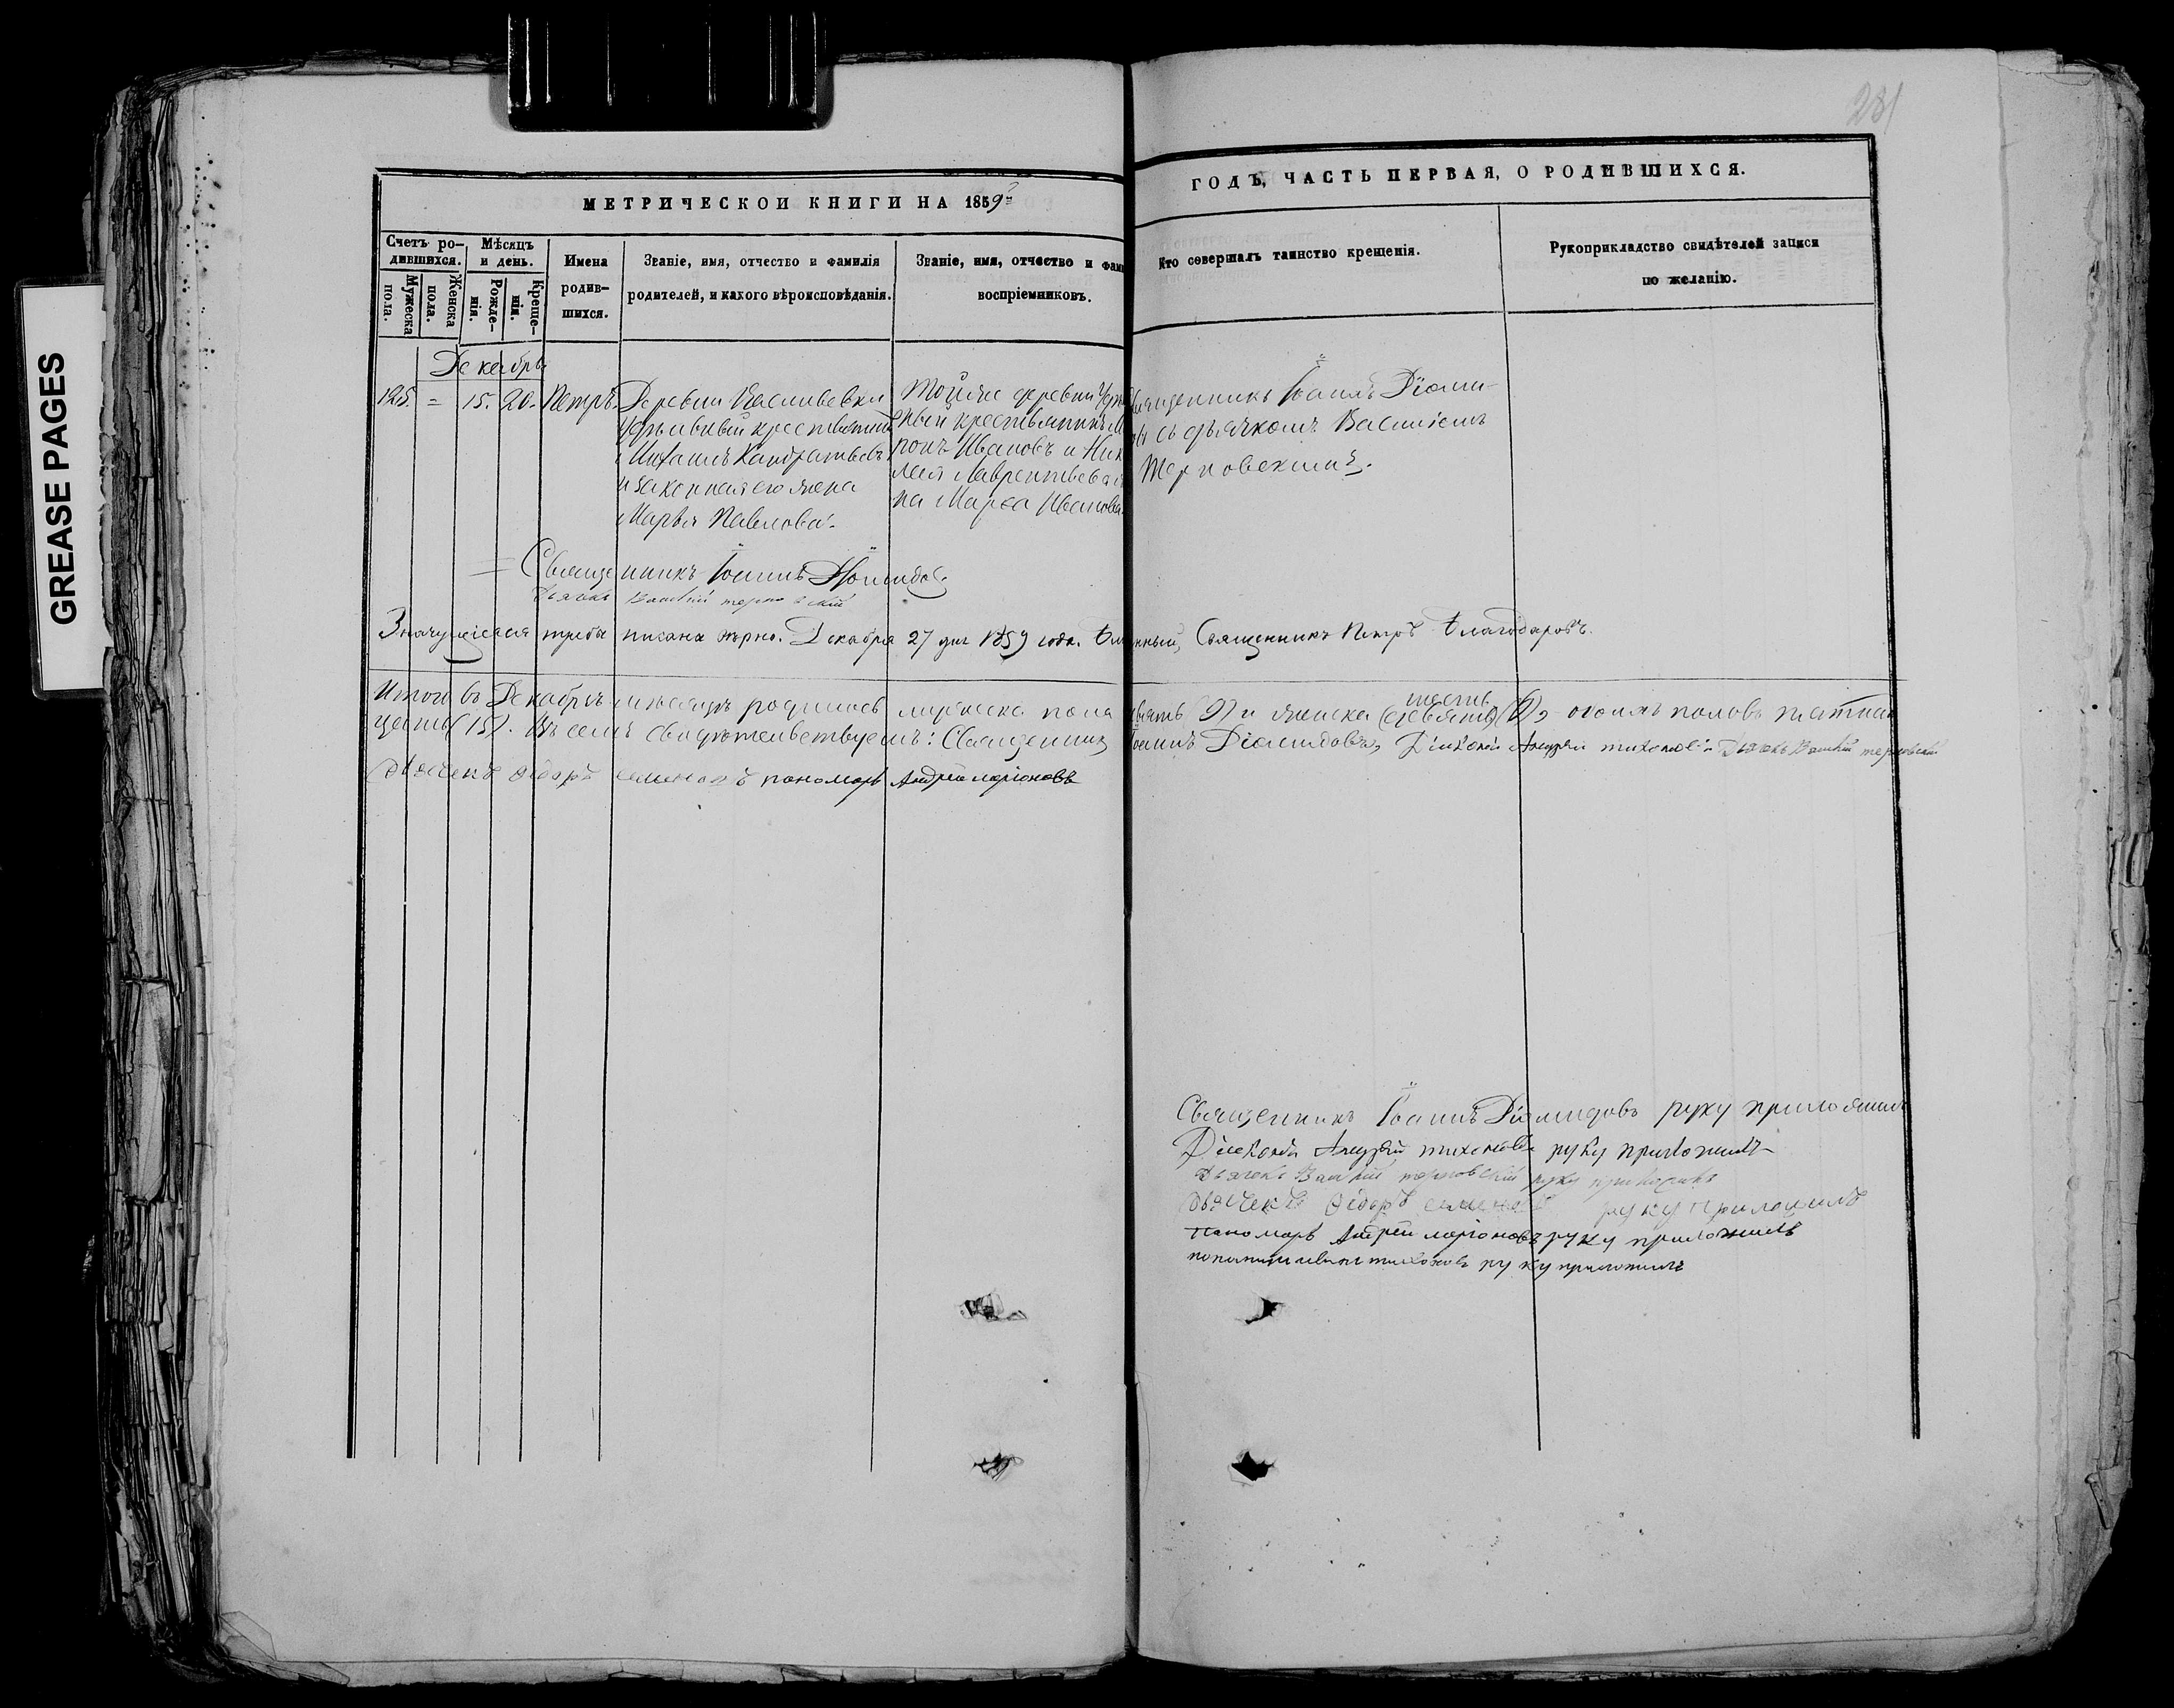 281
GREASE PAGES
МЕТРИЧЕСКОЙ КНИГИ НА 1859й
ГОДЪ, ЧАСТЬ ПЕРВАЯ, О РОДИВШИХСЯ.
Счетъ ро-
дившихся.
Мужеска
пола.
Женска
пола.
Мѣсяцъ
и день.
Рожде-
нія.
Креще-
нія.
Имена
родив-
шихся.
Званіе, имя, отчество и фамилія
родителей, и какого вѣроисповѣданія.
Званіе, имя, отчество и фам
воспріемниковъ.
Кто совершалъ таинство крещенія.
Рукоприкладство свидѣтелей записи
по желанію.
Декабрь
125. = 15. 20. Петръ.
Деревни
Удѣльный крестьянинъ
Кандратьевъ
и законная его жена
Марья Павлова.
Тойже деревни
ный крестьянинъ
Ивановъ и
Лаврентьева
на Марѳа Иванова.
Священникъ Іоаннъ Діоми-
съ дьячкомъ Василіемъ
Терновскимъ.
Священникъ Іоаннъ Діомидов
Дьячекъ Василій терновскій
требы писаны вѣрно. Декабря 27 дня 1859 года. Священникъ Петръ Благодаровъ.
Итого въ Декабрѣ мѣсяцѣ родилось мужеска пола девять (9) и женска (девять) шесть (6), обоихъ половъ пятнад
цать (15). Въ семъ свидѣтельствуемъ: Священникъ Іоаннъ Діомидовъ, Діаконъ Андрей тихоновъ Дьячекъ Василій терновскій
Дьячекъ Ѳедоръ семеновъ пономарь Андрей ларіоновъ
Священникъ Іоаннъ Діомидовъ руку приложилъ
Діаконъ Андрей тихоновъ руку приложилъ
Дьячекъ Василій терновскій руку приложилъ
Дьячекъ Ѳедоръ семеновъ руку приложилъ
пономарь Андрей ларіоновъ руку приложилъ
тихоновъ руку приложилъ